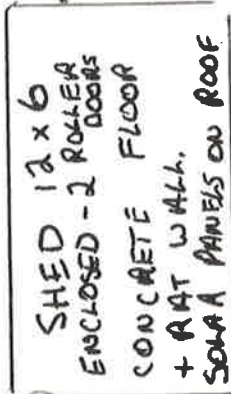 SHED 12 x 6
ENCLOSED - 2 ROLLER
DOORS
CONCRETE FLOOR
+ RAT WALL.
SOLAR PANELS ON ROOF